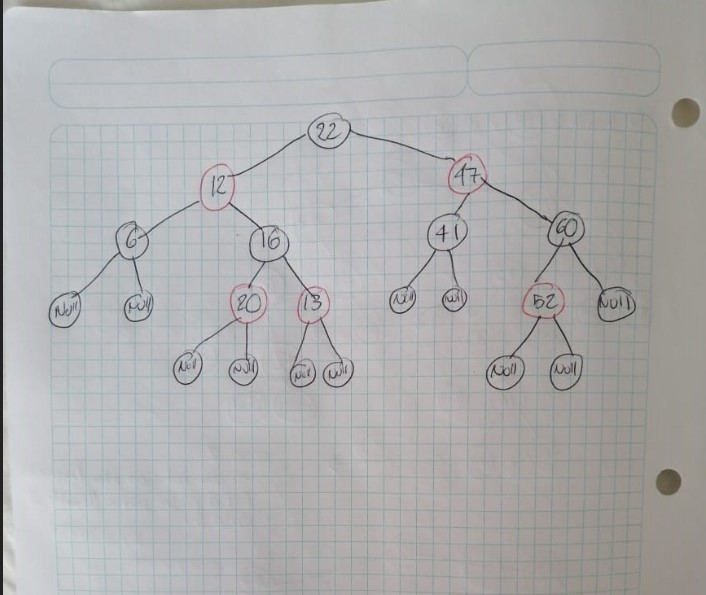 22
12 47
6 16 41 60
Null Null 20 13 Null Null 52 Null
Null Null Null Null Null Null